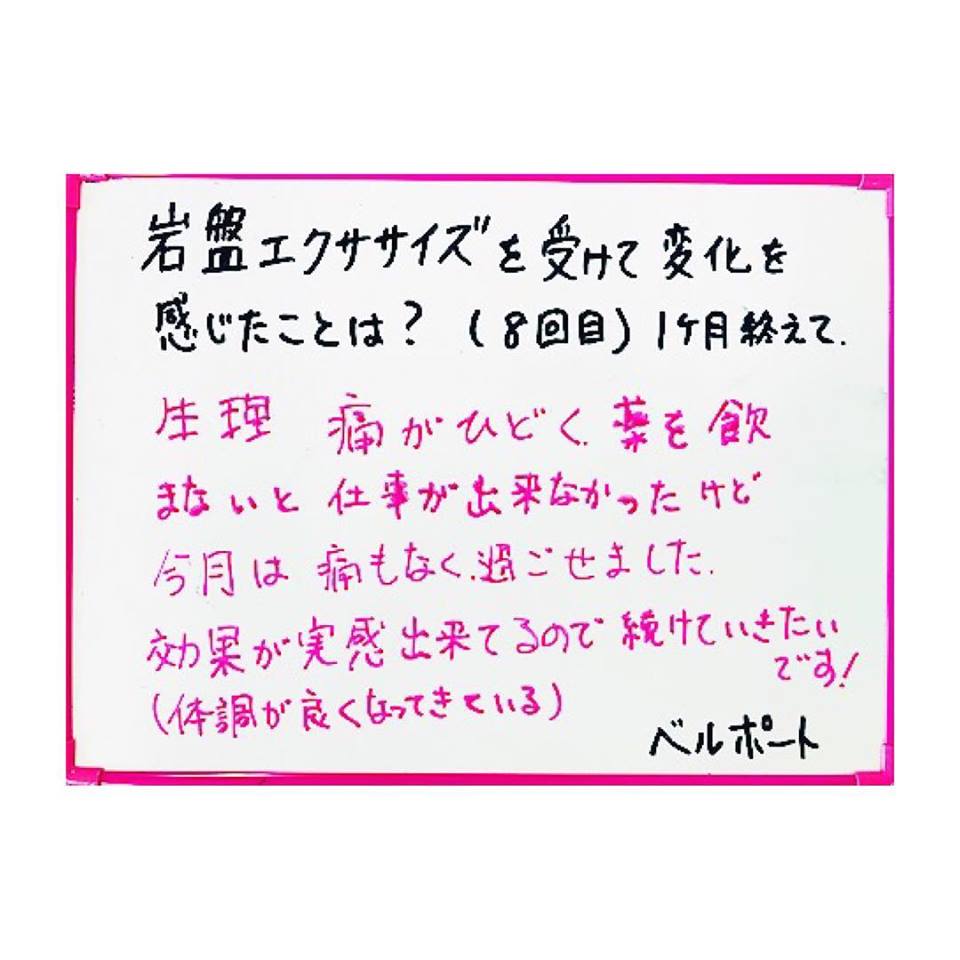 岩盤エクササイズを受けて変化を
感じたことは？（8回目）1ヶ月終えて.
生理 痛がひどく.薬を飲
まないと仕事が出来なかったけど
今月は痛もなく.過ごせました.
効果が実感出来てるので続けていきたい
です!
（体調が良くなってきている）
ベルポート